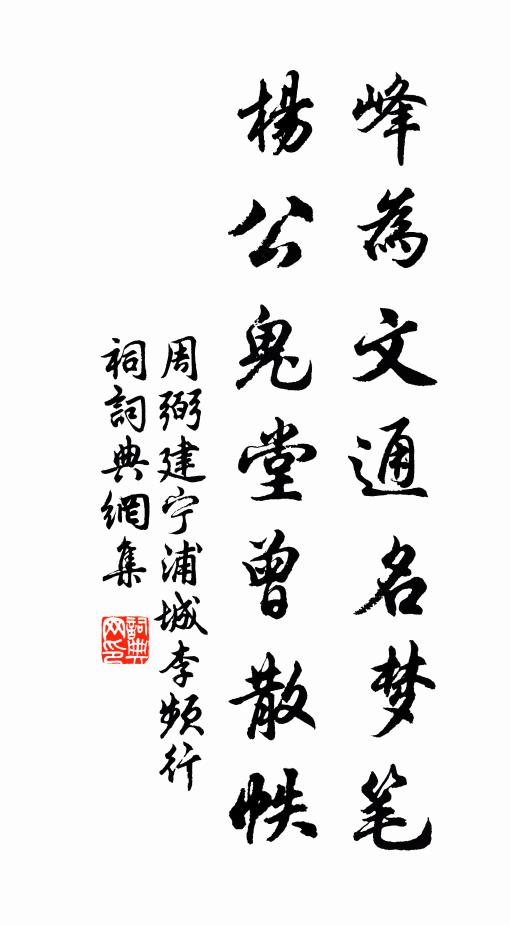 峰為文通名梦笔
楊公鬼堂曾散帙
周弼建宁浦城李频行
祠詞典網集
詞典网印